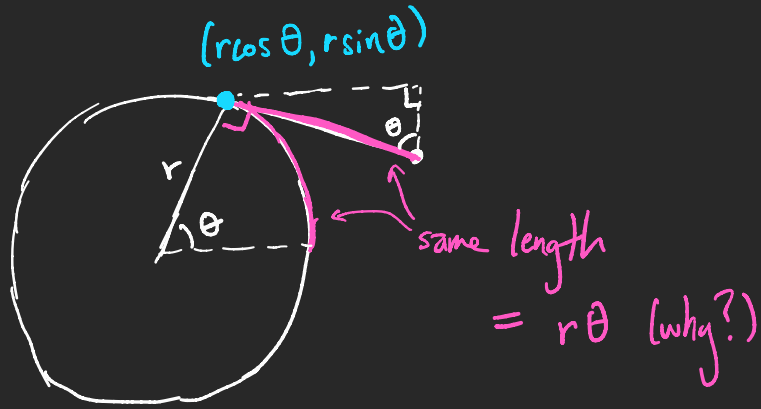 (rcos θ, rsinθ)
θ
r
θ
same length
= rθ (why?)